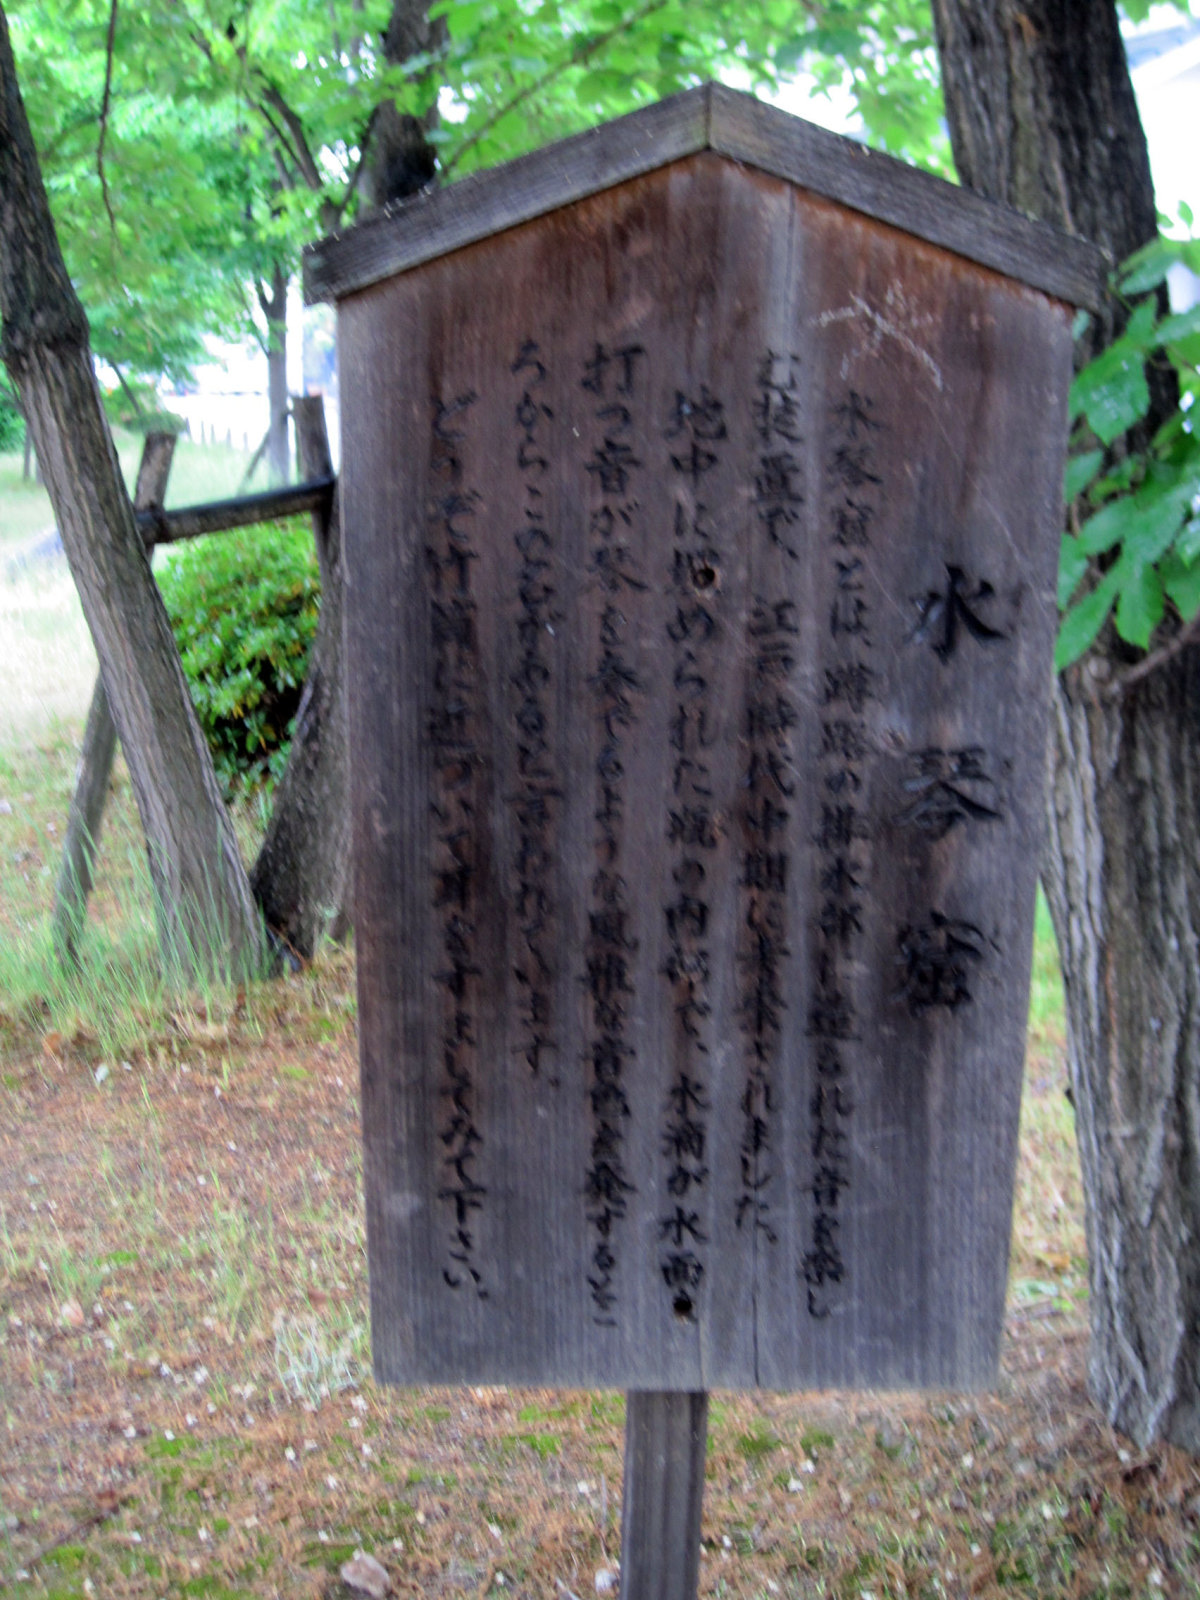 水琴窟
水琴窟とは、蹲踞の排水部に造られた音を楽し
む装置で、江戸時代中期に考案されました。
地中に埋められた瓶の内部で、水滴が水面を
打つ音が琴を奏でるような風雅な音色を発するとこ
ろからこの名があると言われています。
どうぞ竹筒に近づいて耳をすましてみて下さい。